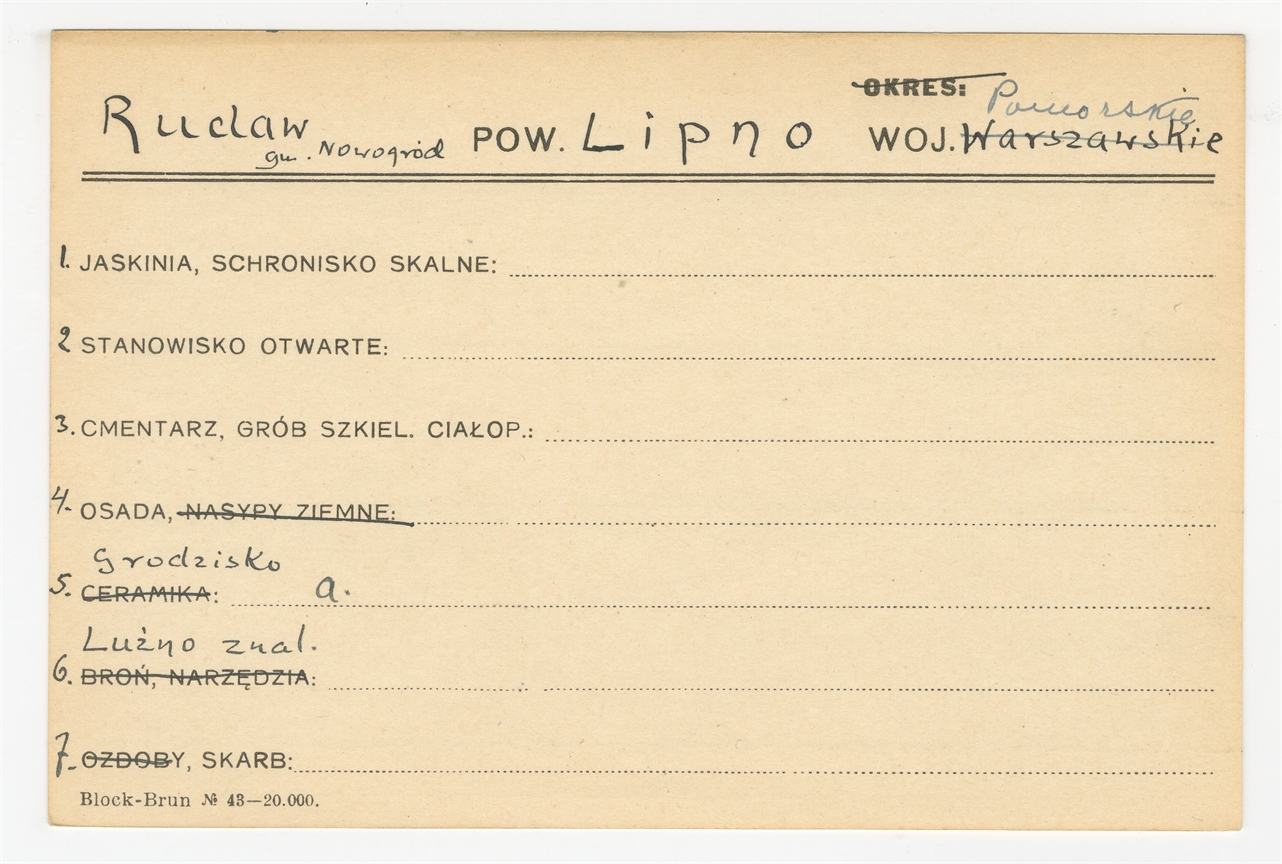 OKRES:
Pomorskie
Rudaw POW. Lipno WOJ. Warszawskie
gm. Nowogród
1. JASKINIA, SCHRONISKO SKALNE:
2 STANOWISKO OTWARTE:
3. CMENTARZ, GRÓB SZKIEL. CIAŁOP.:
4. OSADA, NASYPY ZIEMNE:
Grodzisko
5. CERAMIKA: a.
Luźno znal.
6. BROŃ, NARZĘDZIA:
7. OZDOBY, SKARB:
Block-Brun № 43—20.000.